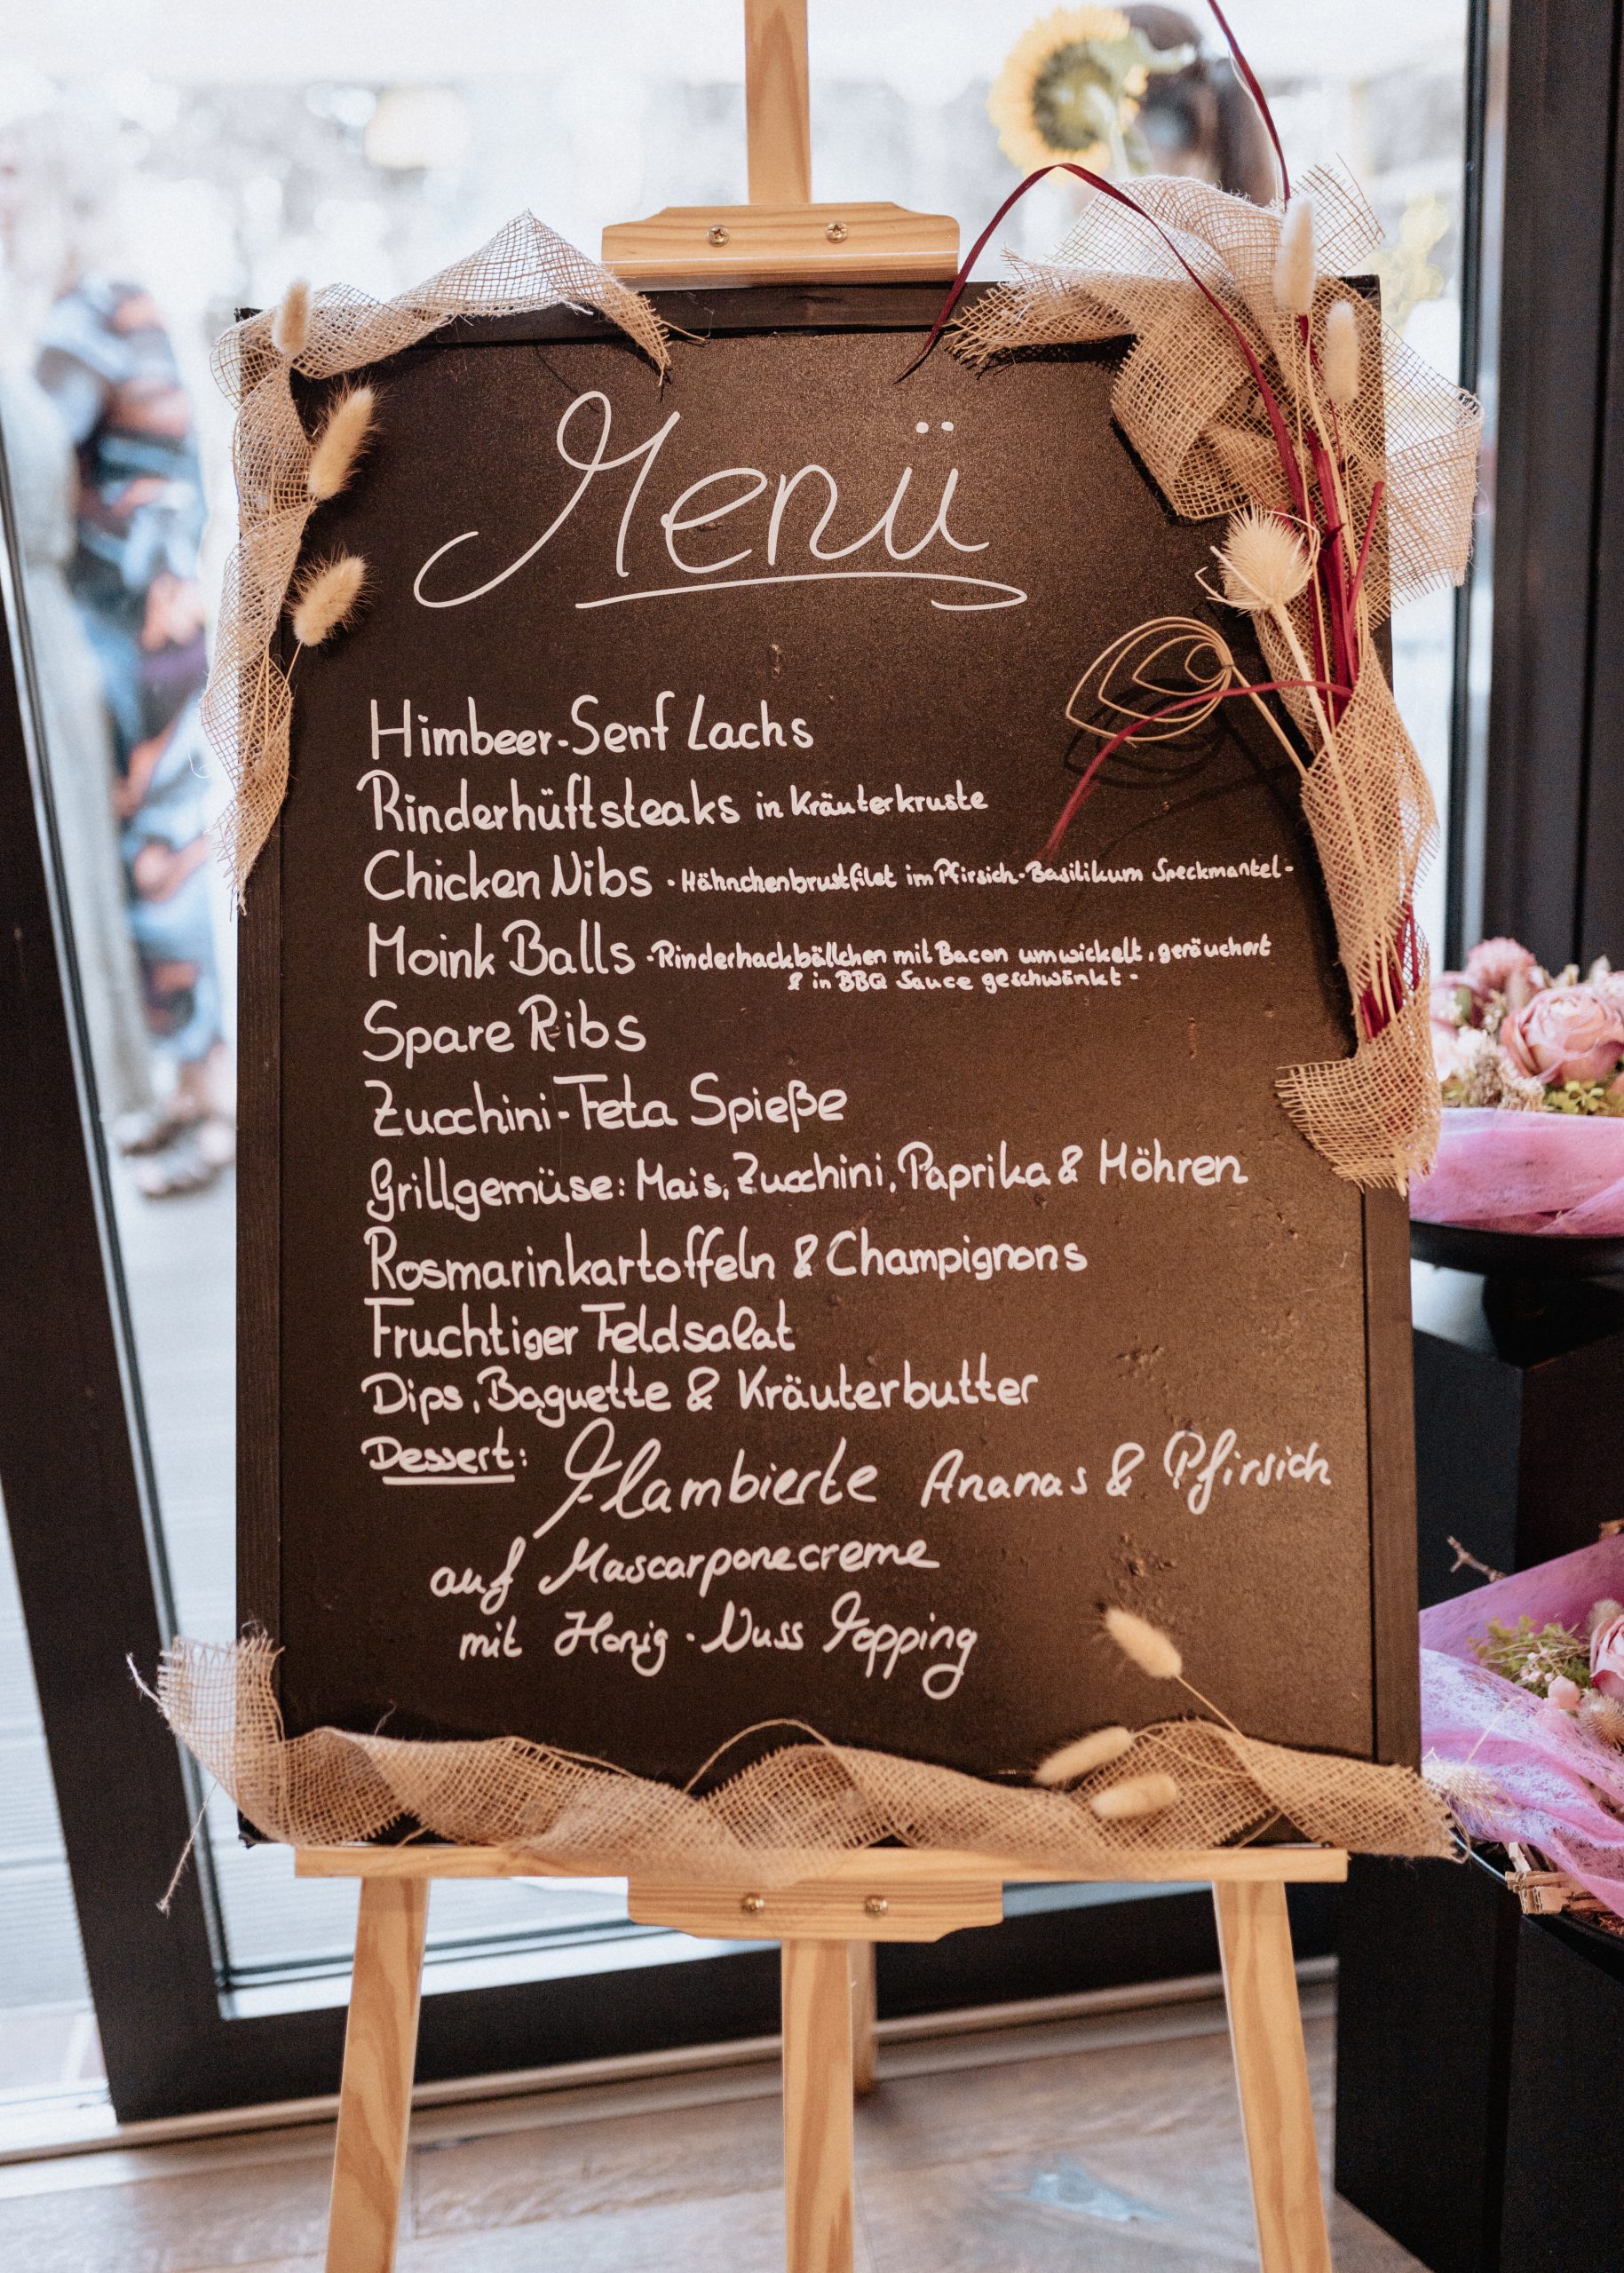 Menü
Himbeer-Senf Lachs
Rinderhüftsteaks in Kräuterkruste
Chicken Nibs - Hähnchenbrustfilet im Pfirsich-Basilikum Speckmantel -
Moink Balls - Rinderhackbällchen mit Bacon umwickelt, geräuchert
& in BBQ Sauce geschwänkt -
Spare Ribs
Zucchini-Feta Spieße
Grillgemüse: Mais, Zucchini, Paprika & Möhren
Rosmarinkartoffeln & Champignons
Fruchtiger Feldsalat
Dips, Baguette & Kräuterbutter
Dessert: Flambierte Ananas & Pfirsich
auf Mascarponecreme
mit Honig-Nuss Topping